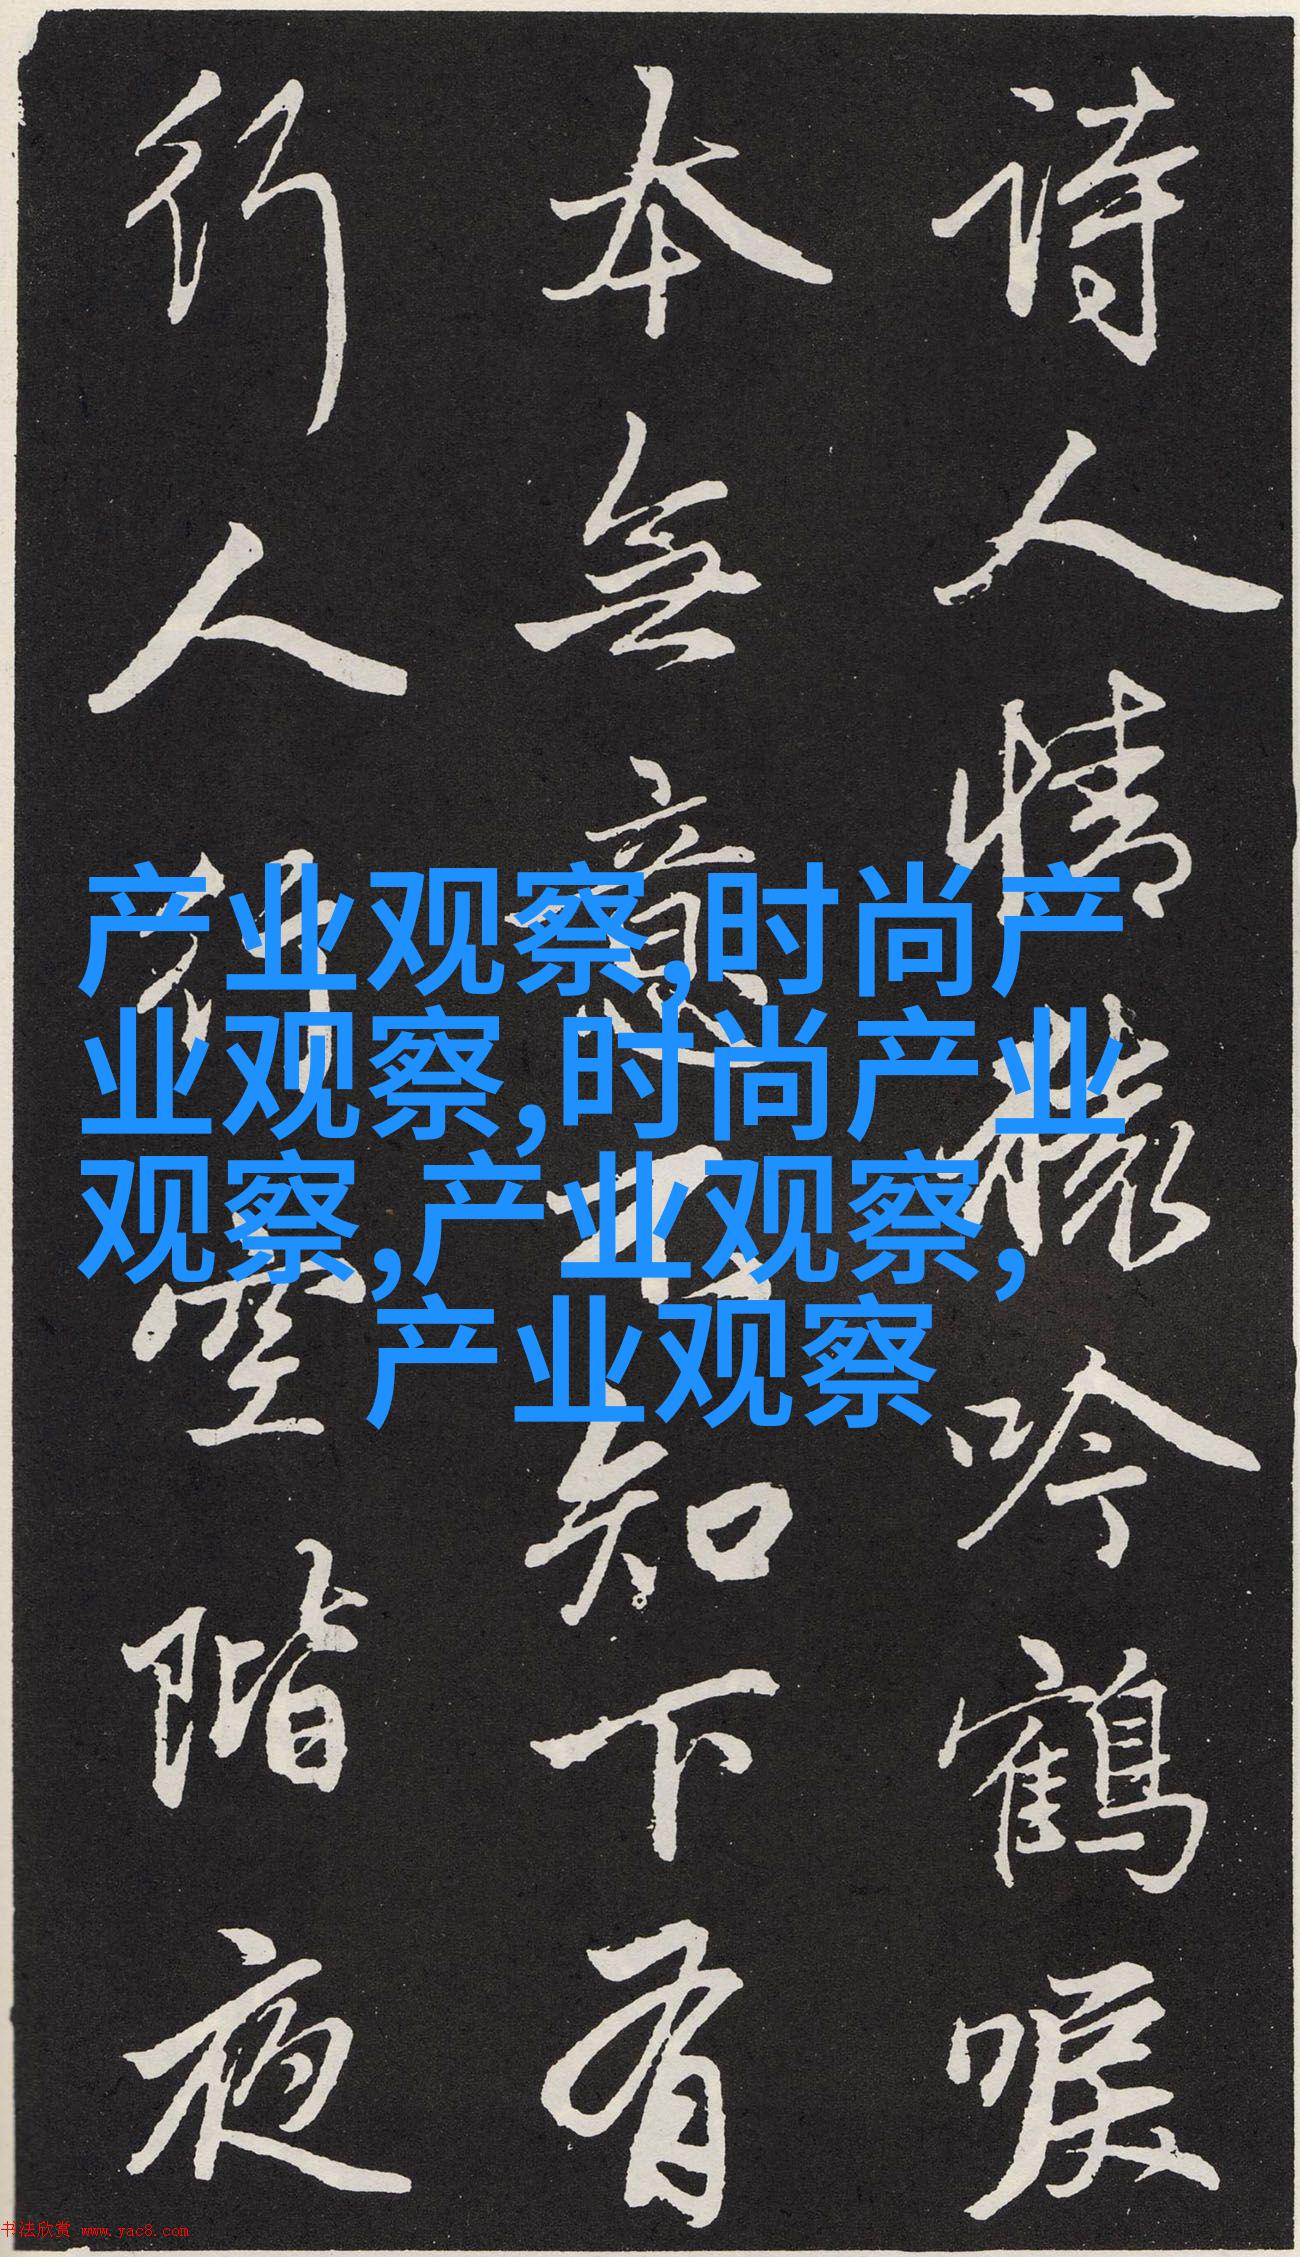 詩人情吟鶴唳
本無意知下有
行人空階夜
产业观察,时尚产
业观察,时尚产业
观察,产业观察,
产业观察
书法欣赏 www.yac8.com